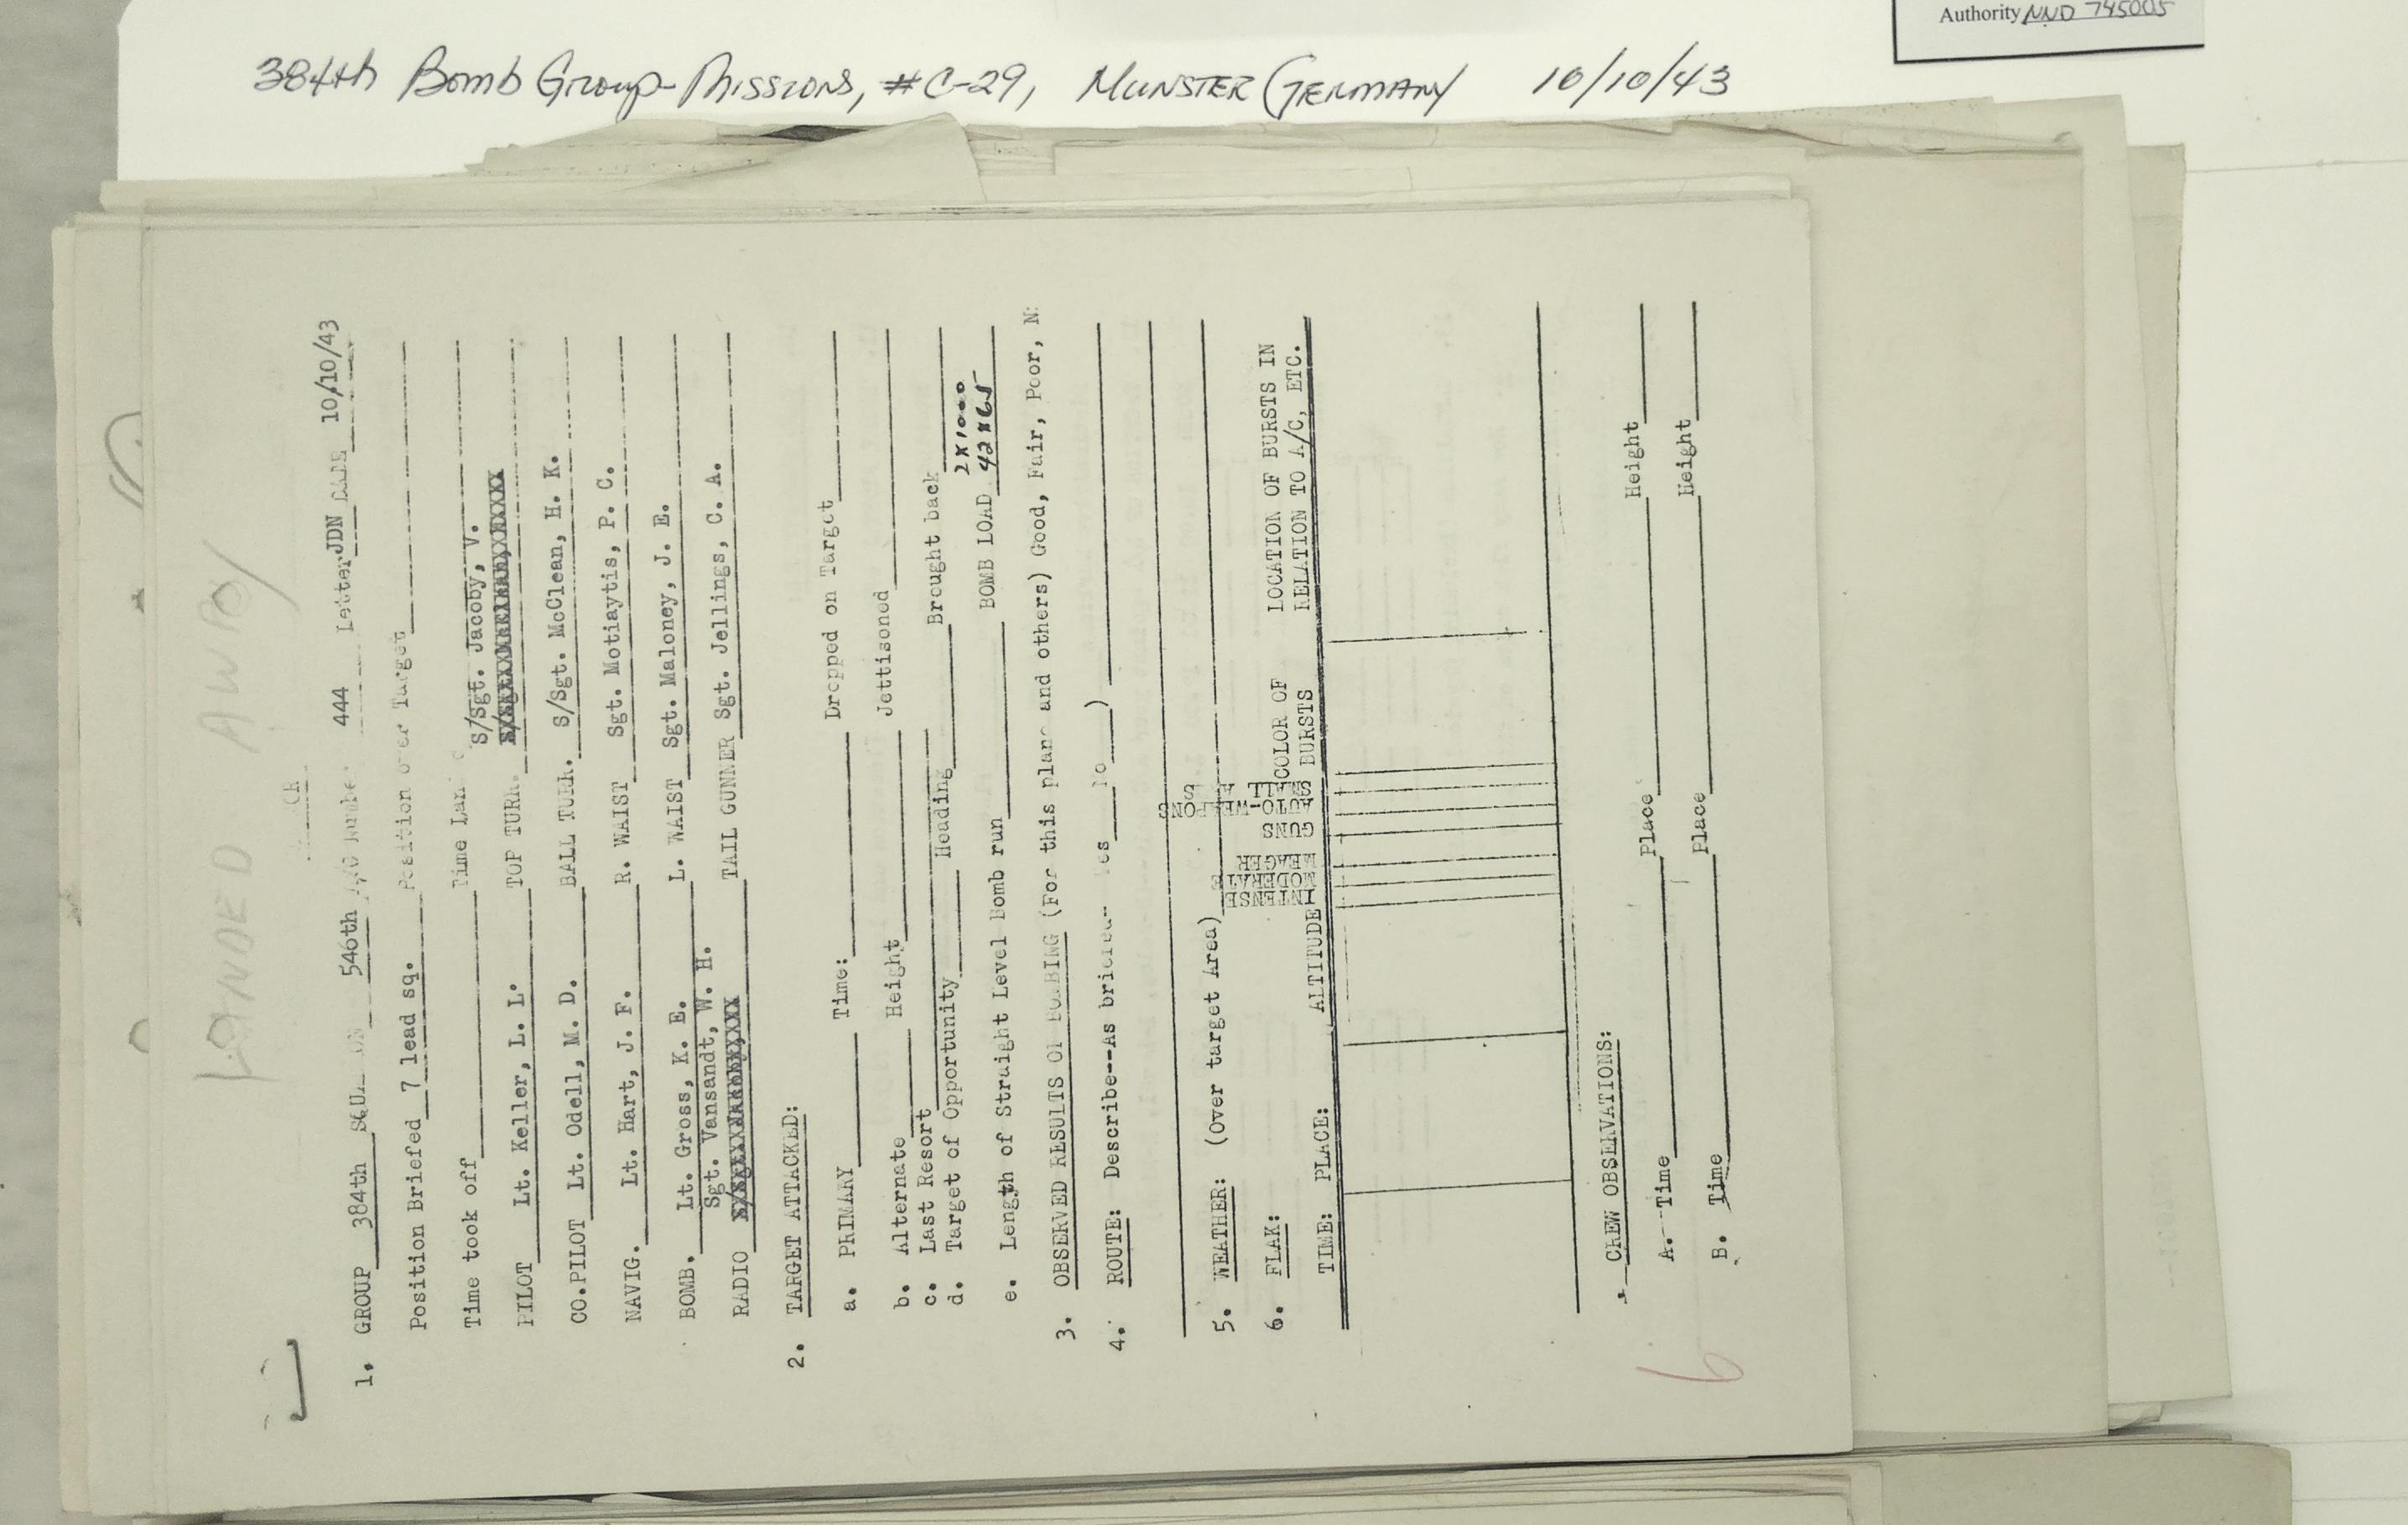 Authority NND 745005
384th Bomb Group-Missions, #C-29, Munster Germany 10/10/43
LANDED AWAY
1. GROUP 384th 546th 444 Letter JDN DATE 10/10/43
Position Briefed 7 lead sq. Position over Target
Time took off Time
S/Sgt. Jacoby, V.
PILOT Lt. Keller, L. L. TOP TURR.
CO.PILOT Lt. Odell, M. D. BALL TURR. S/Sgt. McClean, H. K.
NAVIG. Lt. Hart, J. F. R. WAIST Sgt. Motiaytis, P. C.
BOMB. Lt. Gross, K. E. L. WAIST Sgt. Maloney, J. E.
Sgt. Vansandt, W. H.
RADIO TAIL GUNNER Sgt. Jellings, C. A.
2. TARGET ATTACKED:
a. PRIMARY Time: Dropped on Target
b. Alternate Height Jettisoned
c. Last Resort
d. Target of Opportunity Heading Brought back
2 X 1000
e. Length of Straight Level Bomb run BOMB LOAD 42 X 65
3. OBSERVED RESULTS OF BOMBING (For this plane and others) Good, Fair, Poor, N
4. ROUTE: Describe--As briefed-- Yes No )
5. WEATHER: (Over target Area)
6. FLAK:
TIME: PLACE: ALTITUDE INTENSE MODERATE MEAGER GUNS AUTO-WEAPONS SMALL COLOR OF BURSTS LOCATION OF BURSTS IN
RELATION TO A/C, ETC.
CREW OBSERVATIONS:
A. Time Place Height
B. Time Place Height